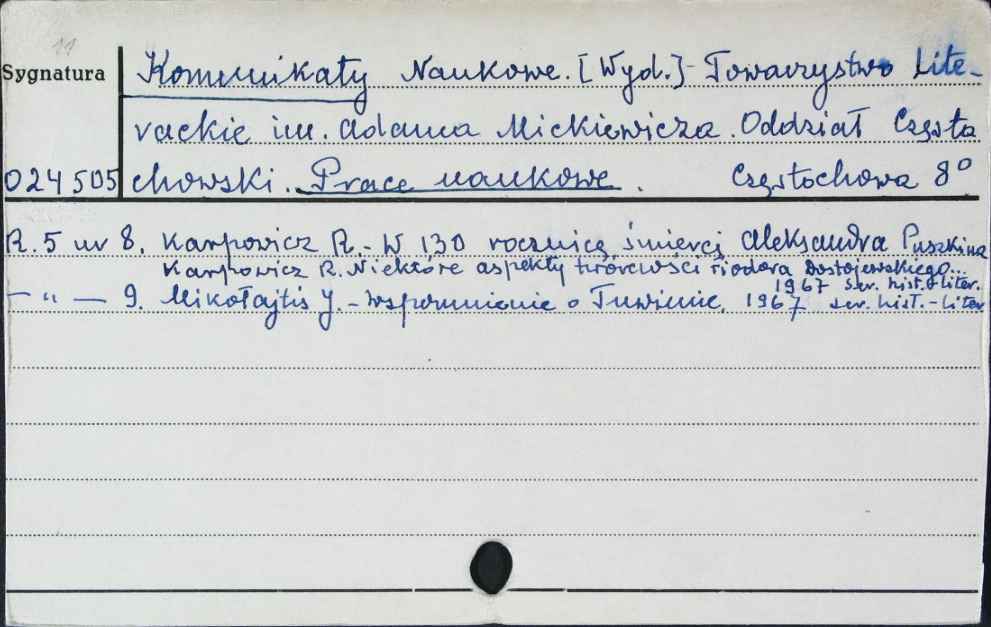 11
Sygnatura
Komunikaty Naukowe. [Wyd.] Towarzystwo Lite-
rackie im. Adama Mickiewicza. Oddział Często
024505 chowski. Prace naukowe. Częstochowa 8°
R. 5 nr 8. Karpowicz R. - W 130 rocznicę śmierci Aleksandra Puszkina
Karpowicz R. Niektóre aspekty twórczości Fiodora Dostojewskiego...
1967 ser. hist. - liter.
— " — 9. Mikołajtis J. - Wspomnienie o Tuwimie. 1967 ser. hist. - liter